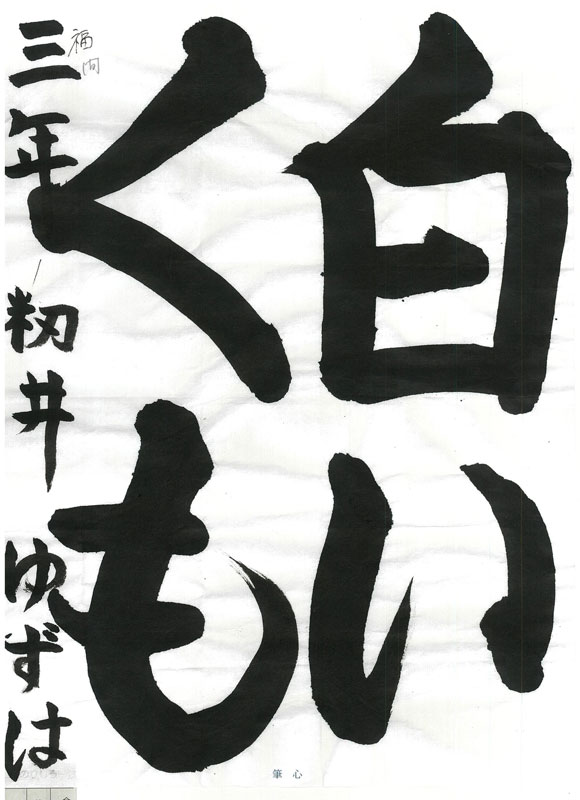 白い
くも
三年 籾井 ゆずは
福間
心筆